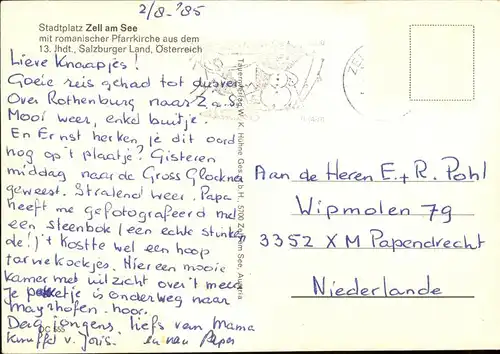 2/8-'85
Stadtplatz Zell am See
mit romanischer Pfarrkirche aus dem
13. Jhdt., Salzburger Land, Österreich
Lieve Knaapjes!
Goeie reis gehad tot dusver
Over Rothenburg naar Z.a.S.
Mooi weer, enkel buitje.
En Ernst herken je dit oord
nog op 't plaatje? Gisteren
middag naar de Gross Glockner
geweest. Stralend weer. Papa
heeft me gefotografeerd met
een steenbok (een echte stinken
de! 't kostte wel een hoop
tarwekoekjes. Hier een mooie
kamer met uitzicht over 't meer
Je pakketje is onderweg naar
Mayrhofen hoor.
Dag jongens, liefs van Mama
Knuffel v. Joris. en van Papa
DC 655
Tauernverlag W. K. Hühne Ges. m. b. H., 5700 Zell am See, Austria
Aan de Heren E. + R. Pohl
Wipmolen 79
3352 XM Papendrecht
Niederlande